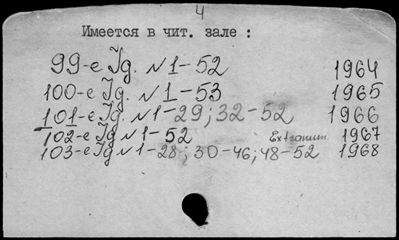 4
Имеется в чит. зале :
99-е Jg. N1-52 1964
100-е Jg. N1-53 1965
101-е Jg. N1-29; 32-52 1966
102-е Jg N1-52 1967
103-е Jg N1-28; 30-46; 48-52 1968